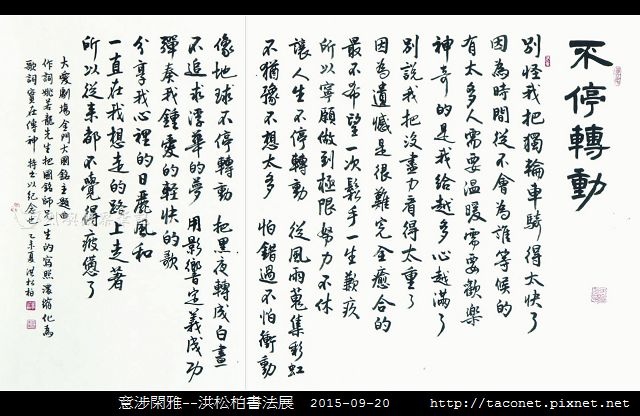 不停轉動
別怪我把獨輪車騎得太快了
因為時間從不會為誰等候的
有太多人需要溫暖需要歡樂
神奇的是我給越多心越滿了
別說我把沒盡力看得太重了
因為遺憾是很難完全癒合的
最不希望一次鬆手一生歉疚
所以寧願做到極限努力不休
讓人生不停轉動 從風雨蒐集彩虹
不猶豫不想太多 怕錯過不怕衝動
像地球不停轉動 把黑夜轉成白晝
不追求浮華的夢 用影響定義成功
彈奏我鍾愛的輕快的歌
分享我心裡的日麗風和
一直在我想走的路上走著
所以從來都不覺得疲憊了
大愛劇場金門大國銘主題曲
作詞姚若龍先生把國銘師兄一生的寫照濃縮化為
歌詞實在傳神 特書以紀念也 乙未夏 洪松柏
意涉閑雅--洪松柏書法展 2015-09-20 http://taconet.pixnet.net